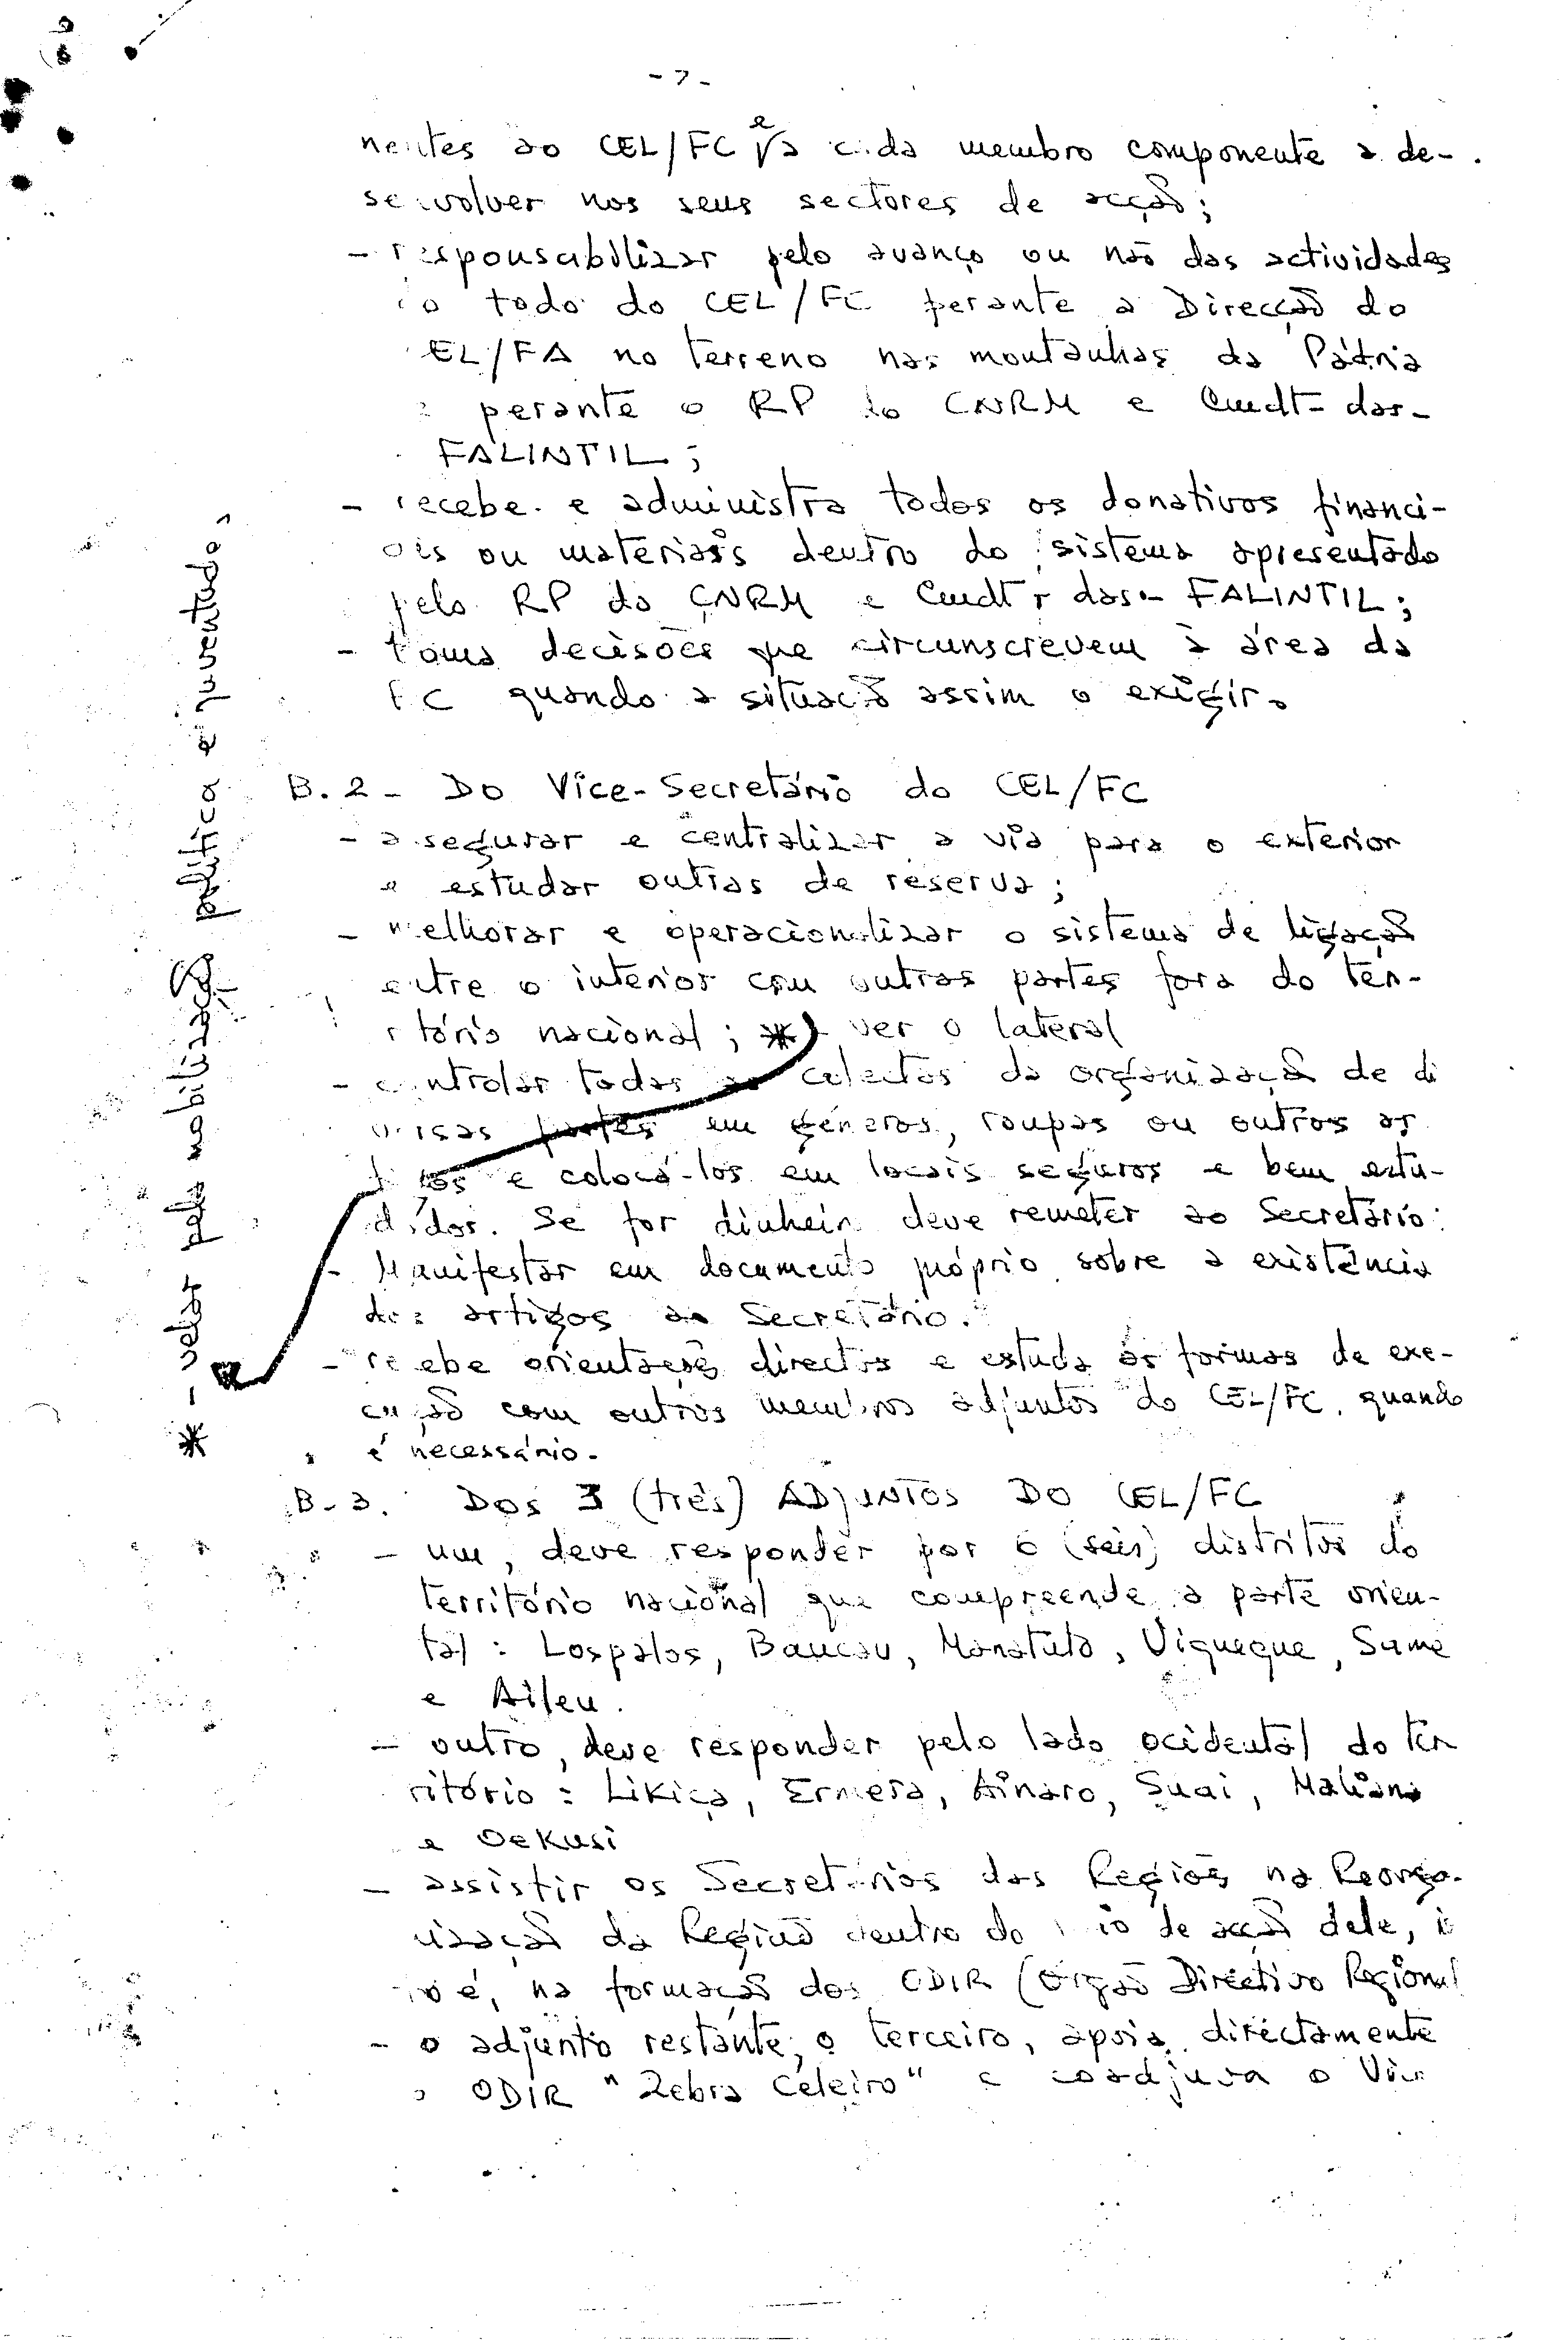 - 7 -
nentes ao CEL/FC e a cada membro componente a de-
senvolver nos seus sectores de acção;
- responsabilizar pelo avanço ou não das actividades
do todo do CEL/FC perante a Direcção do
CEL/FA no terreno nas montanhas da Pátria
e perante o RP do CNRM e Cmdt- das-
FALINTIL;
- recebe e administra todos os donativos financi-
ais ou materiais dentro do sistema apresentado
pelo RP do CNRM e Cmdt- das- FALINTIL;
- toma decisões que circunscrevem à área da
FC quando a situação assim o exigir.
B.2 - Do Vice-Secretário do CEL/FC
- assegurar e centralizar a via para o exterior
e estudar outras de reserva;
- melhorar e operacionalizar o sistema de ligação
entre o interior com outras partes fora do ter-
ritório nacional; * ver o lateral
- controlar todas as colectas da organização de di
versas partes em géneros, roupas ou outros ar
tigos e colocá-los em locais seguros e bem estu-
dados. Se for dinheiro deve remeter ao Secretário.
- Manifestar em documento próprio sobre a existência
dos artigos ao Secretário.
- recebe orientações directas e estuda as formas de exe-
cução com outros membros adjuntos do CEL/FC, quando
é necessário.
B-3. Dos 3 (três) ADJUNTOS DO CEL/FC
- um, deve responder por 6 (seis) distritos do
território nacional que compreende a parte orien-
tal: Lospalos, Baucau, Manatuto, Viqueque, Same
e Aileu.
- outro, deve responder pelo lado ocidental do ter
ritório: Likiça, Ermera, Ainaro, Suai, Maliana
e Oekusi
- assistir os Secretários das Regiões na Reorga-
nização da Região dentro do raio de acção dele, is
to é, na formação dos ODIR (Orgão Directivo Regional
- o adjunto restante, o terceiro, apoia directamente
o ODIR "Zebra Celeiro" e coadjuva o Vice
* - velar pela mobilização política e juventude,